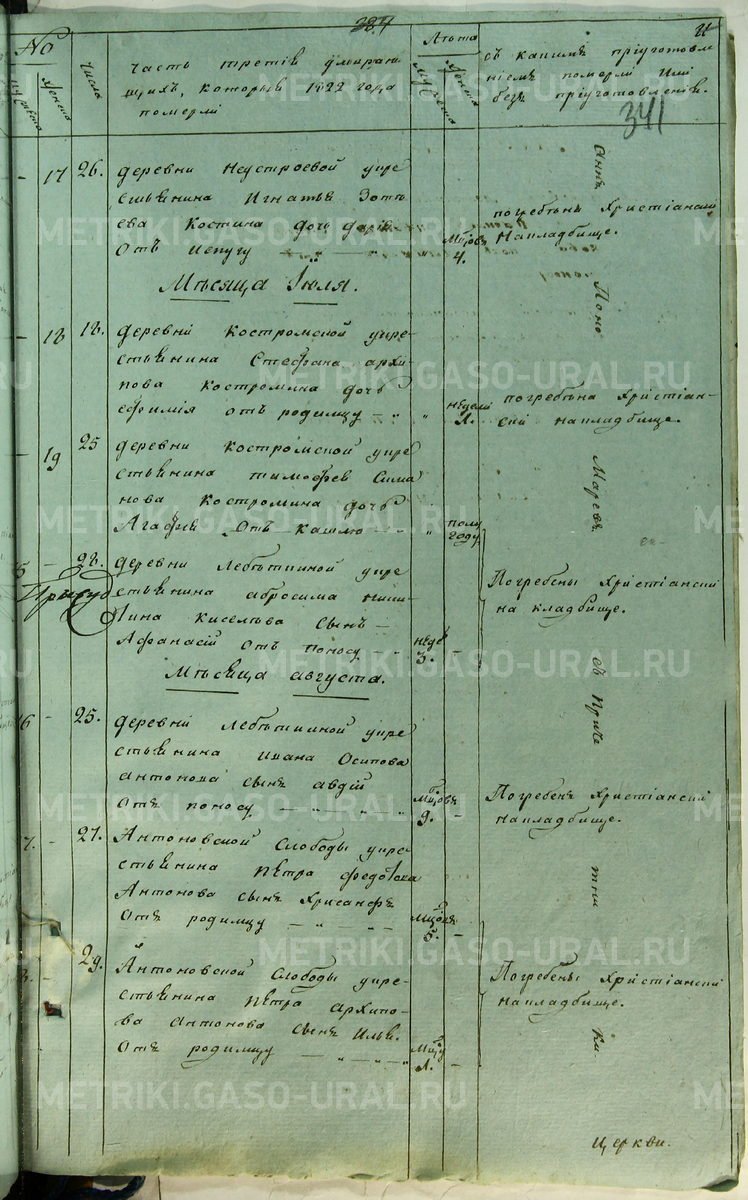 384
341
№
мужеска
женска
числа
Часть третия умираю
щихъ, которыя 1822 года
померли
Лѣта
муже
женска
съ какимъ приуготовле
ниемъ померли или
безъ приуготовления.
17
26.
деревни Неустроевой у кре
стьянина Игнатья Зоть
ева Костина дочь Дарья
Отъ испугу
Мцовъ
4.
погребены Християнски
на кладбище.
Мѣсяца Июля.
18
18.
деревни Костромской у кре-
стьянина Стефана архи-
пова Костромина дочь
Ефимия отъ родимцу
недели
1.
погребена християн-
ски на кладбище.
19
25
деревни Костромской у кре
стьянина тимофея Сима
нова Костромина дочь
Агафья Отъ кашлю
полу
году
5
28.
деревни Лебяткиной у кре
стьянина абросима ники-
тина Киселева сынъ
Афанасий отъ поносу
неде
3.
Погребены Християнски
на кладбище.
Мѣсяца августа.
6
25.
деревни Лебяткиной у кре
стьянина ивана Осипова
антонова сынъ авдий
Отъ поносу
Мцовъ
9.
Погребенъ Християнски
на кладбище.
7.
27.
Антоновской Слободы у кре-
стьянина Петра федотова
Антонова сынъ Хрисанфъ
Отъ родимцу
Мцовъ
5.
8.
29.
Антоновской Слободы у кре-
стьянина Петра архипо-
ва антонова сынъ Илья.
Отъ родимцу
Мцу
1.
Погребены Християнски
на кладбище.
Поно
Марева
съ Приче
тни
ки.
Церкви.
METRIKI.GASO-URAL.RU